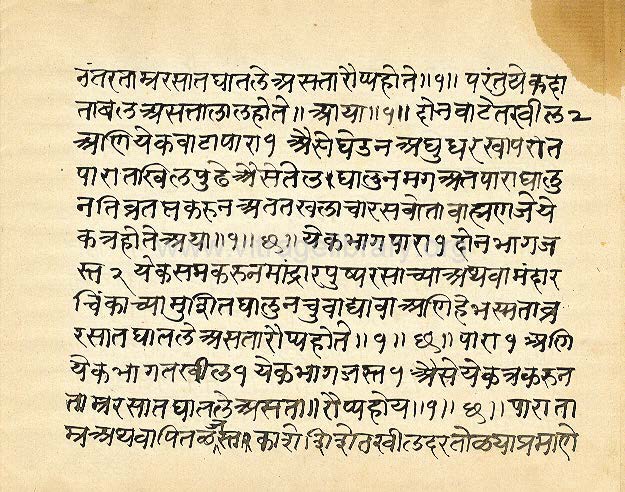 नंतरताम्ररसातघातले असतारौप्यहोते॥१॥ परंतुयेकदा
ताबेलअसतालालहोते॥ आया॥१॥ दोनवाटेतखील२
आणियेकवाटापारा१ अैसेघेउन अघुधरखापरात
पारातखिलपुढेअैसेतेल१घालुनमगआतपाराघालु
नतिव्रतप्तकरुनआततखलाचारसवोतावाह्मणजेये
कत्रहोतेआया॥१॥छ॥ येकभागपारा१दोनभागज
स्त२ येकसमकरुनमांद्रारपुष्परसाच्याअथवामंदार
चिंकाच्यामुशितघालुनचुवाद्यावाआणिहेभस्मताम्र
रसातघातलेअसतारौप्यहोते॥१॥छ॥पारा१ आणि
येकभागतखील१येकभागजस्त१अैसेयेकत्रकरुन
ताम्ररसातघातलेअसता॥रौप्यहोय॥१॥छ॥पाराता
म्रअथवापितळ जस्त काशेशिशेतखीलदरतोळ्याप्रमाणे
www.vitragelibrary.org